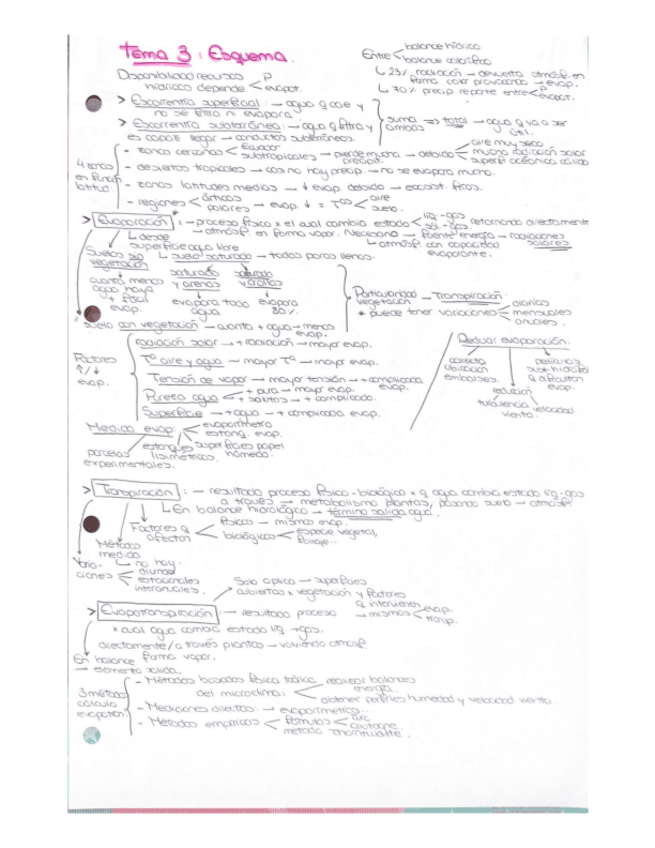 Tema 3: Esquema.
Entre balance hídrico
balance calorífico
Disponibilidad recursos
hídricos depende P
evapot.
23% radiación → devuelta atmósf. en
forma calor provocando → evap.
70% precip. reparte entre P
evapot.
> Escorrentía superficial: → agua q cae y
no se filtra ni evapora.
> Escorrentía subterránea: → agua q filtra y
es capaz llegar → conductos subterráneos.
suma ambas => total → agua q va a ser
útil.
4 zonas
en función
latitud
- zonas cercanas Ecuador
subtropicales → pierde mucho → debido
precipit.
aire muy seco
mucha radiación solar
superf. oceánica cálida
- desiertos tropicales → casi no hay precip. → no se evapora mucho.
- zonas latitudes medias → ↓ evap. debido → escorr. frías.
- regiones árticas
polares → evap. ↓ = Tªs aire
suelo.
> Evaporación: → proceso físico x el cual cambia estado liq-gas
sól-gas. retornando directamente
→ atmósf. en forma vapor. Necesario → fuente energía → radiaciones
solares
↳ atmósf. con capacidad
evaporante.
↳ desde
superficie agua libre
↳ suelo saturado → todos poros llenos.
Suelos sin
vegetación
cuanto menos
agua haya
+ fácil
evap.
saturado
y arenas
evapora todo
agua
saturado
y arcillas
evapora
80%.
Particularidad
vegetación → Transpiración:
* puede tener variaciones diarias
mensuales
anuales.
* suelo con vegetación → cuanto + agua → menos
evap.
Factores
↑/↓
evap.
radiación solar → + radiación → mayor evap.
Tª aire y agua → mayor Tª → mayor evap.
Tensión de vapor → mayor tensión → + complicada
evap.
Pureza agua + pura → mayor evap.
+ solutos → + complicado.
Superficie → + agua → + complicada evap.
Reducir evaporación:
correcta
ubicación
embalses.
reducción
turbulencia velocidad
viento.
películas
sust. hidrófob
q dificultan
evap.
Medida evap: evaporímetro
estanq. evap.
superficies papel
húmedo.
estanques
lisimétricos.
parcelas
experimentales.
> Transpiración: → resultado proceso físico-biológico x q agua cambia estado liq-gas
a través → metabolismo plantas, pasando suelo → atmósf.
↳ En balance hidrológico → término salida agua.
Factores q
afectan físicos → mismos evap.
biológicos especie vegetal,
follaje...
Métodos
medida
↳ no hay.
Varia-
ciones diurnas
estacionales
interanuales.
Solo aplica → superficies
cubiertas x vegetación y factores
q intervienen
→ mismos evap.
transp.
> Evapotranspiración → resultado proceso
x cual agua cambia estado liq → gas.
directamente/a través plantas → volviendo atmósf.
forma vapor.
En balance
→ elemento salida.
3 métodos
cálculo
evapotran.
- Métodos basados física teórica
del microclima: realizar balances
energía.
obtener perfiles humedad y velocidad viento.
- Mediciones directas: → evaporimétrico...
- Métodos empíricos fórmulas turc
coutagne.
método thornthwaite.